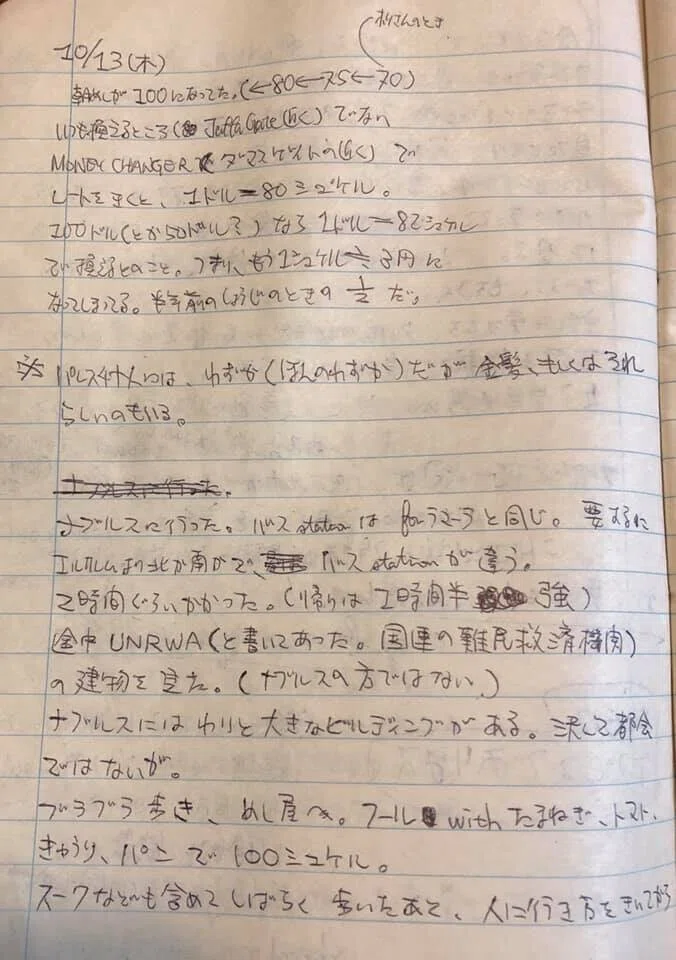 10/13(木)
朝めしが100になってた。(←80←75←70)
いつも換えるところ(Jaffa Gate 近く)でない
MONEY CHANGER(ダマスゲイトの近く)で
レートをきくと、1ドル=80シュケル。
100ドル(とか50ドル?)なら1ドル=82シュケル
で換えるとのこと。つまり、もう1シュケル≒3円に
なってしまってる。半年前の のときの1/2だ。
※ パレスチナ人には、わずか(ほんのわずか)だが金髪、もしくはそれ
らしいのもいる。
ナブルスに行った。
ナブルスに行った。バスstationはforラマラと同じ。要するに
エルサレムより北か南かで、バスstationが違う。
2時間ぐらいかかった。(帰りは1時間半強)
途中UNRWA(と書いてあった。国連の難民救済機関)
の建物を見た。(ナブルスの方ではない)
ナブルスにはわりと大きなビルディングがある。決して都会
ではないが。
ブラブラ歩き、めし屋へ。フール with たまねぎ、トマト、
きゅうり、パンで100シュケル。
スークなども含めてしばらく歩いたあと、人に行き方をきいてから